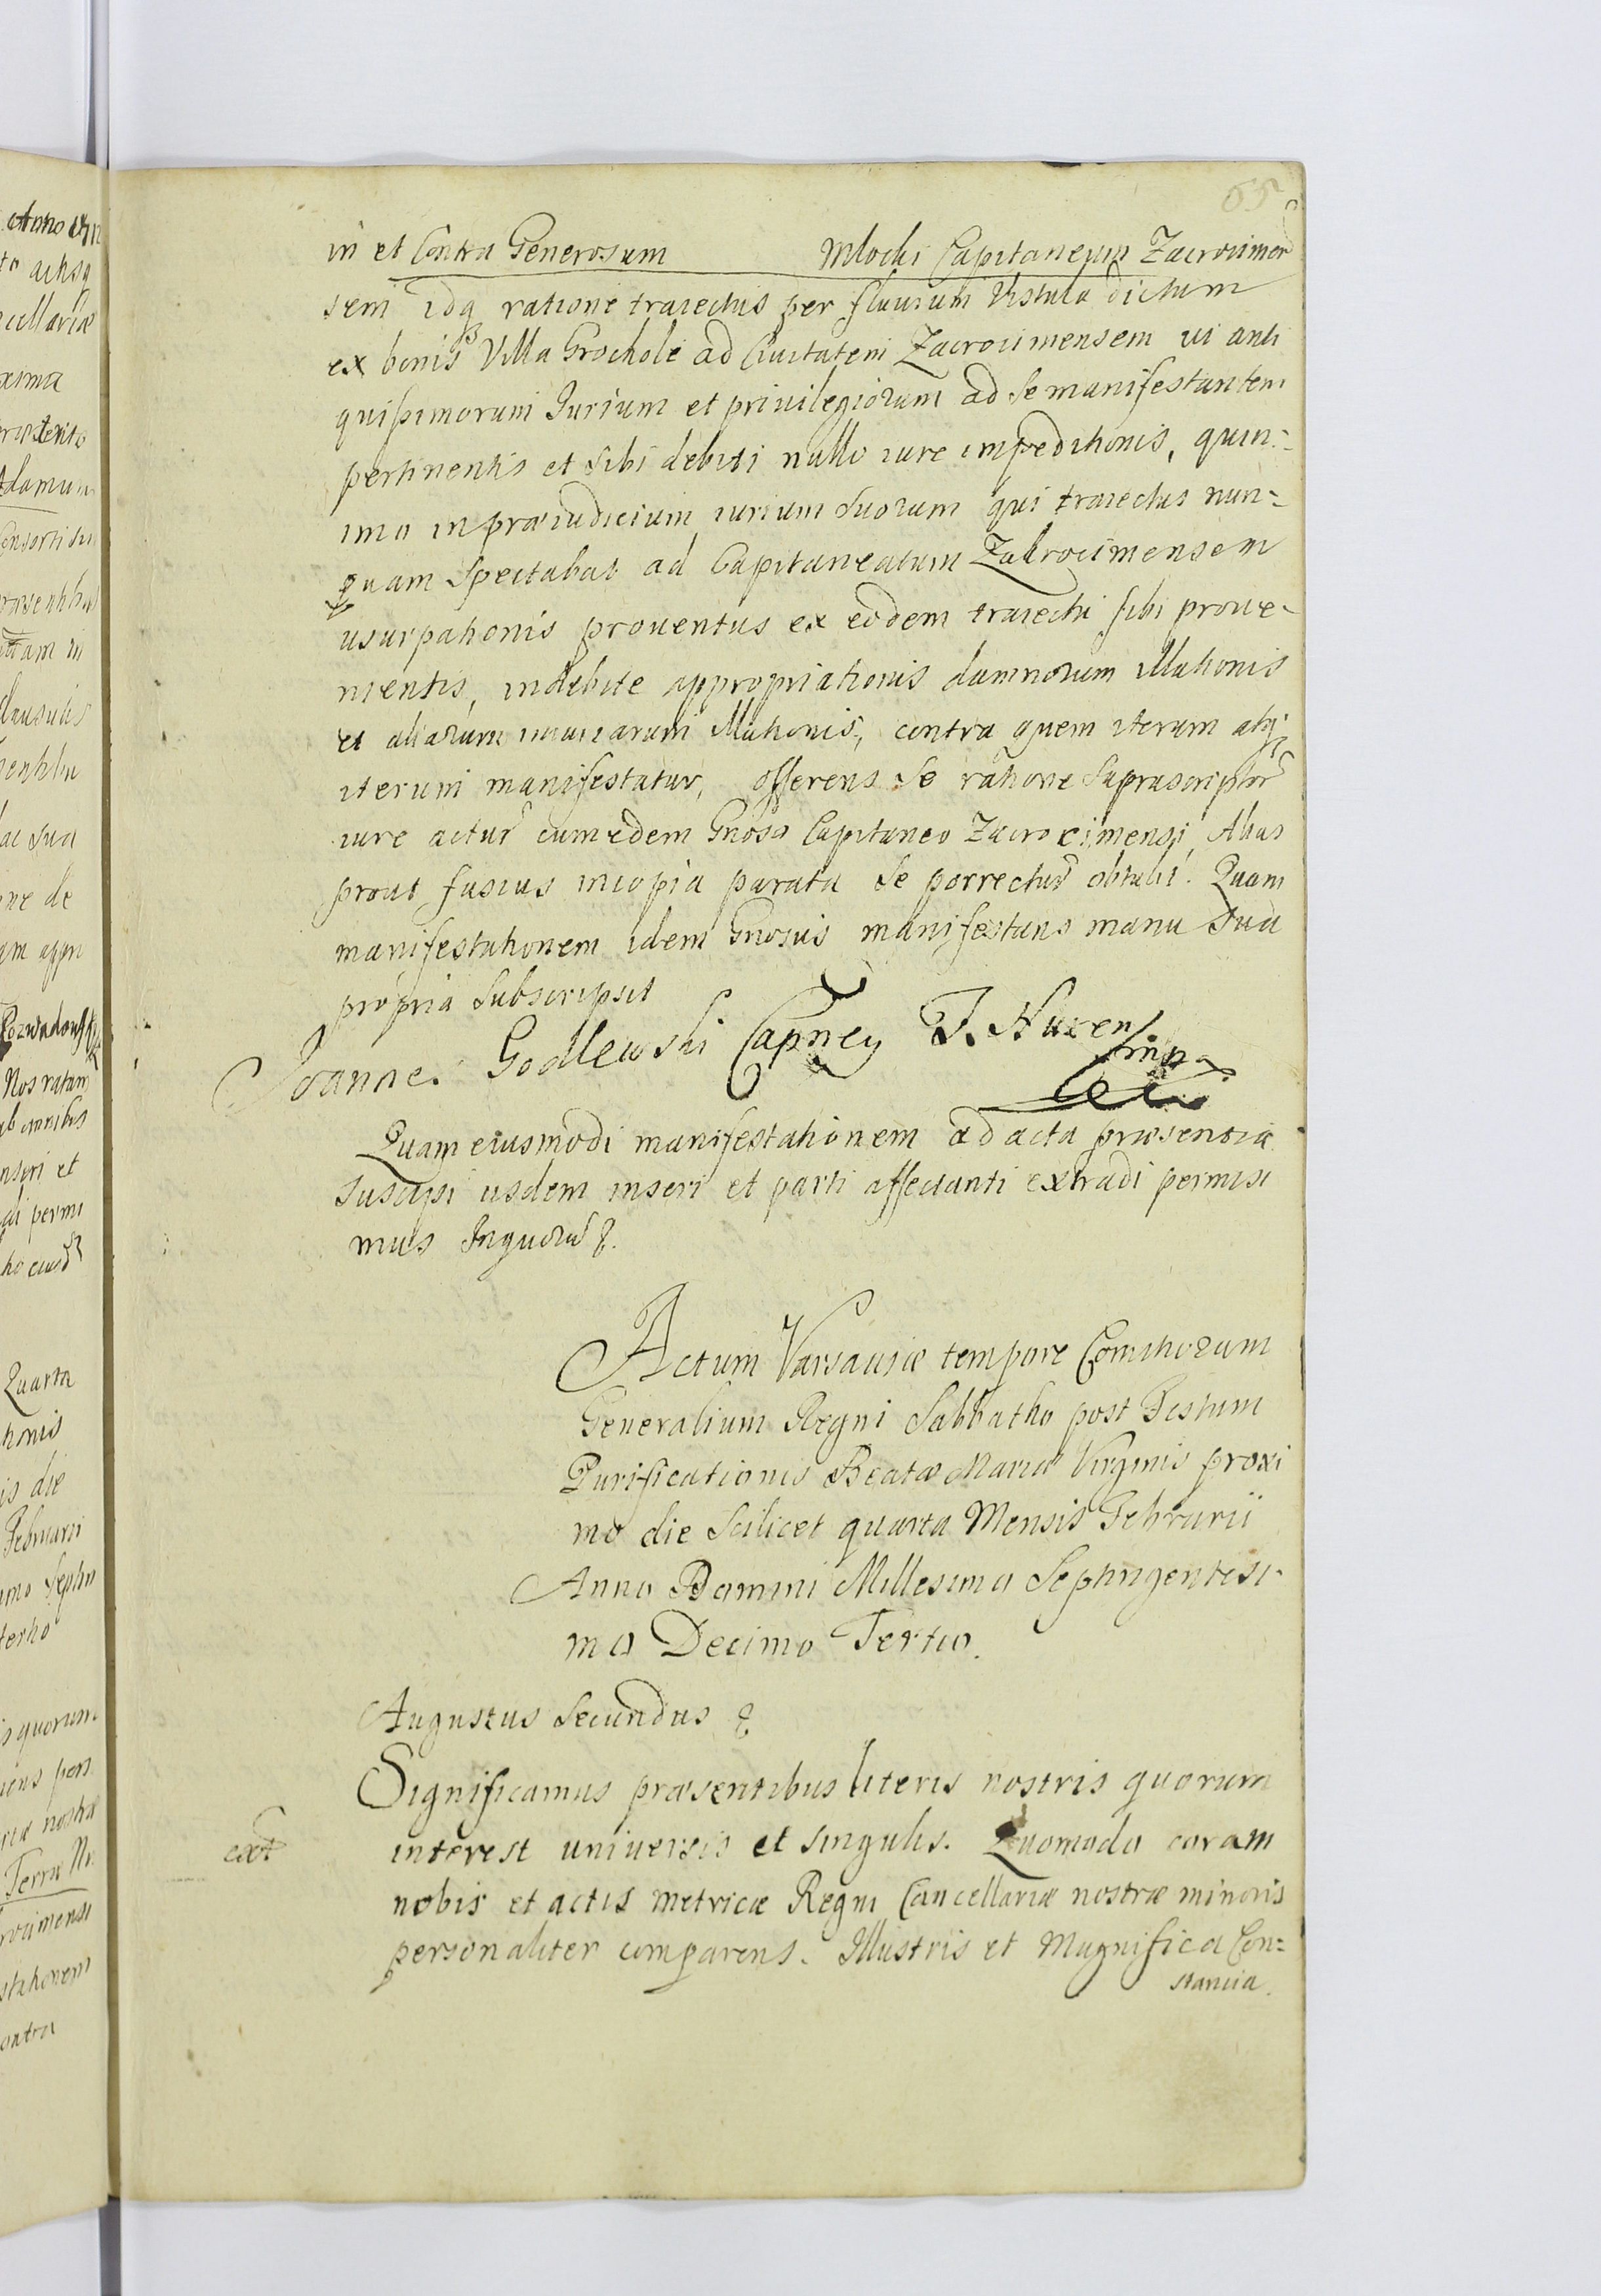 55
in et Contra Generosum Mlocki Capitaneum Zacrocimen
sem idq ratione traiectus per fluuium Vistula dictum
ex bonis Villa Grochole ad Ciuitatem Zacrocimensem ui anti
quissimorum Iurium et priuilegiorum ad se manifestantem
pertinentis et sibi debiti nullo iure impeditionis, quin:
imo in præiudicium iurium suorum qui traiectus nun=
quam spectabat ad Capitaneatum Zakrocimensem
usurpationis prouentus ex eodem traiectu sibi proue-
nientis, indebite appropriationis damnorum illationis
et aliarum iniuriarum illationis, contra quem iterum atq
iterum manifestatur, offerens se ratione suprascriptor
iure actur cum eodem Gnoso Capitaneo Zacrocimensi, Alias
prout fusius in copia parata se porrectur obtulit. Quam
manifestationem idem Gnosus manifestans manu sua
propria subscripsit
Joanne. Godlewski Capney T. Nuren
mp
Quam eiusmodi manifestationem ad acta præsentia
suscipi iisdem inseri et parti affectanti extradi permisi
mus Inquoru &.
Actum Varsauiæ tempore Comitiorum
Generalium Regni Sabbatho post Festum
Purificationis Beatæ Mariæ Virginis proxi
mo die scilicet quarta Mensis Februarii
Anno Domini Millesimo Septingentesi-
mo Decimo Tertio.
Augustus Secundus &
Significamus præsentibus literis nostris quorum
ext
interest uniuersis et singulis. Quomodo coram
nobis et actis Metricæ Regni Cancellariæ nostræ minoris
personaliter comparens. Illustris et Magnifica Con=
stancia.